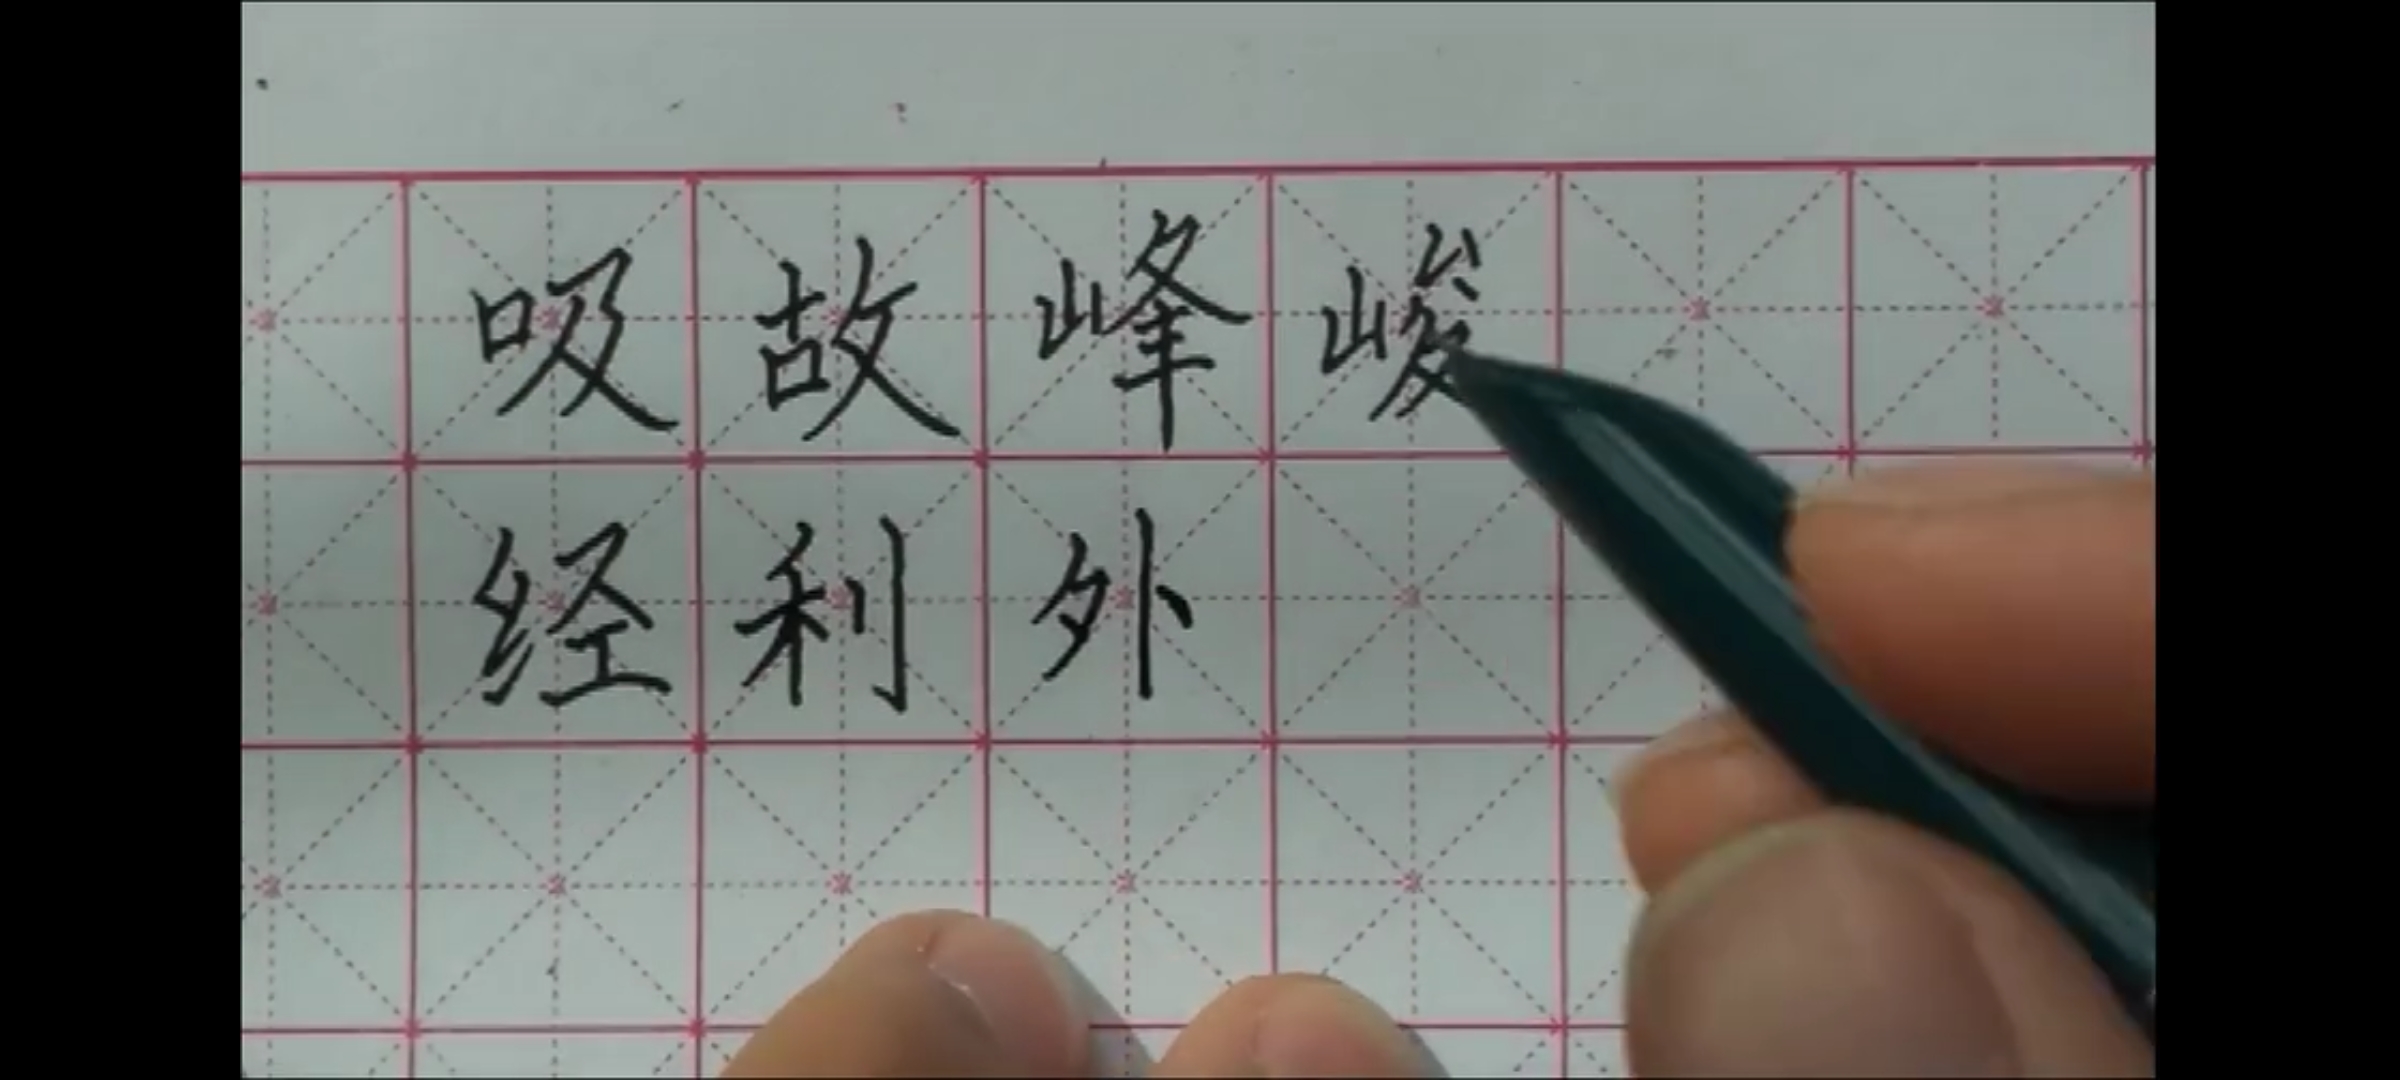 吸故峰峻
经利外